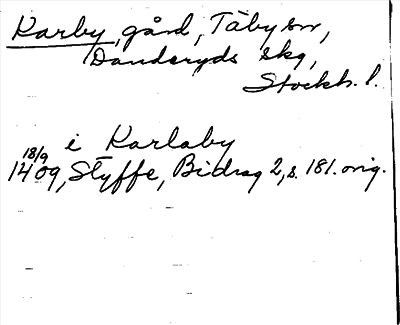 Karby, gård, Täby sn,
Danderyds skg,
Stockh. l.
i Karlaby
18/9
1409, Styffe, Bidrag 2, s. 181. orig.